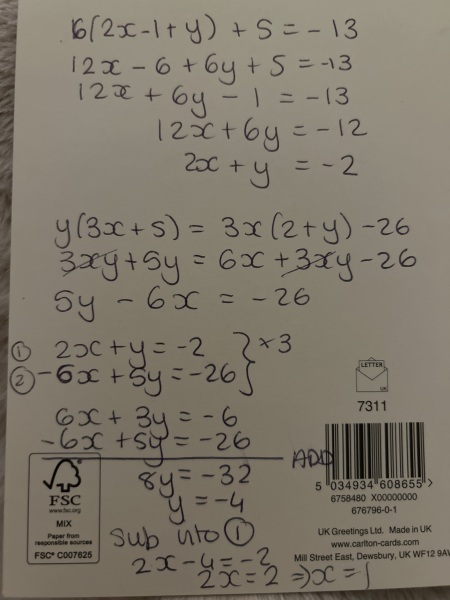 6(2x-1+y) + 5 = -13
12x - 6 + 6y + 5 = -13
12x + 6y - 1 = -13
12x + 6y = -12
2x + y = -2
y(3x+5) = 3x(2+y) - 26
3xy + 5y = 6x + 3xy - 26
5y - 6x = -26
① 2x + y = -2 } ×3
② -6x + 5y = -26
6x + 3y = -6
-6x + 5y = -26
ADD
8y = -32
y = -4
sub into ①
2x - 4 = -2
2x = 2 ⇒ x = 1
FSC
www.fsc.org
MIX
Paper from
responsible sources
FSC® C007625
LETTER
UK
7311
5 034934 608655 >
6758480 X00000000
676796-0-1
UK Greetings Ltd. Made in UK
www.carlton-cards.com
Mill Street East, Dewsbury, UK WF12 9AW